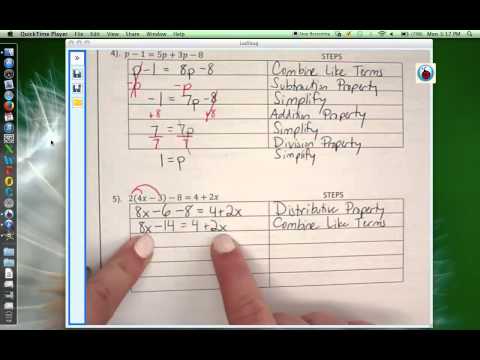 QuickTime Player File Edit View Window Help
Not Recording
Mon 1:17 PM
Ladibug
4). p − 1 = 5p + 3p − 8 STEPS
p − 1 = 8p − 8 Combine Like Terms
−p −p Subtraction Property
−1 = 7p − 8 Simplify
+8 +8 Addition Property
7 = 7p Simplify
7 7 Division Property
1 = p Simplify
5). 2(4x − 3) − 8 = 4 + 2x STEPS
8x − 6 − 8 = 4 + 2x Distributive Property
8x − 14 = 4 + 2x Combine Like Terms